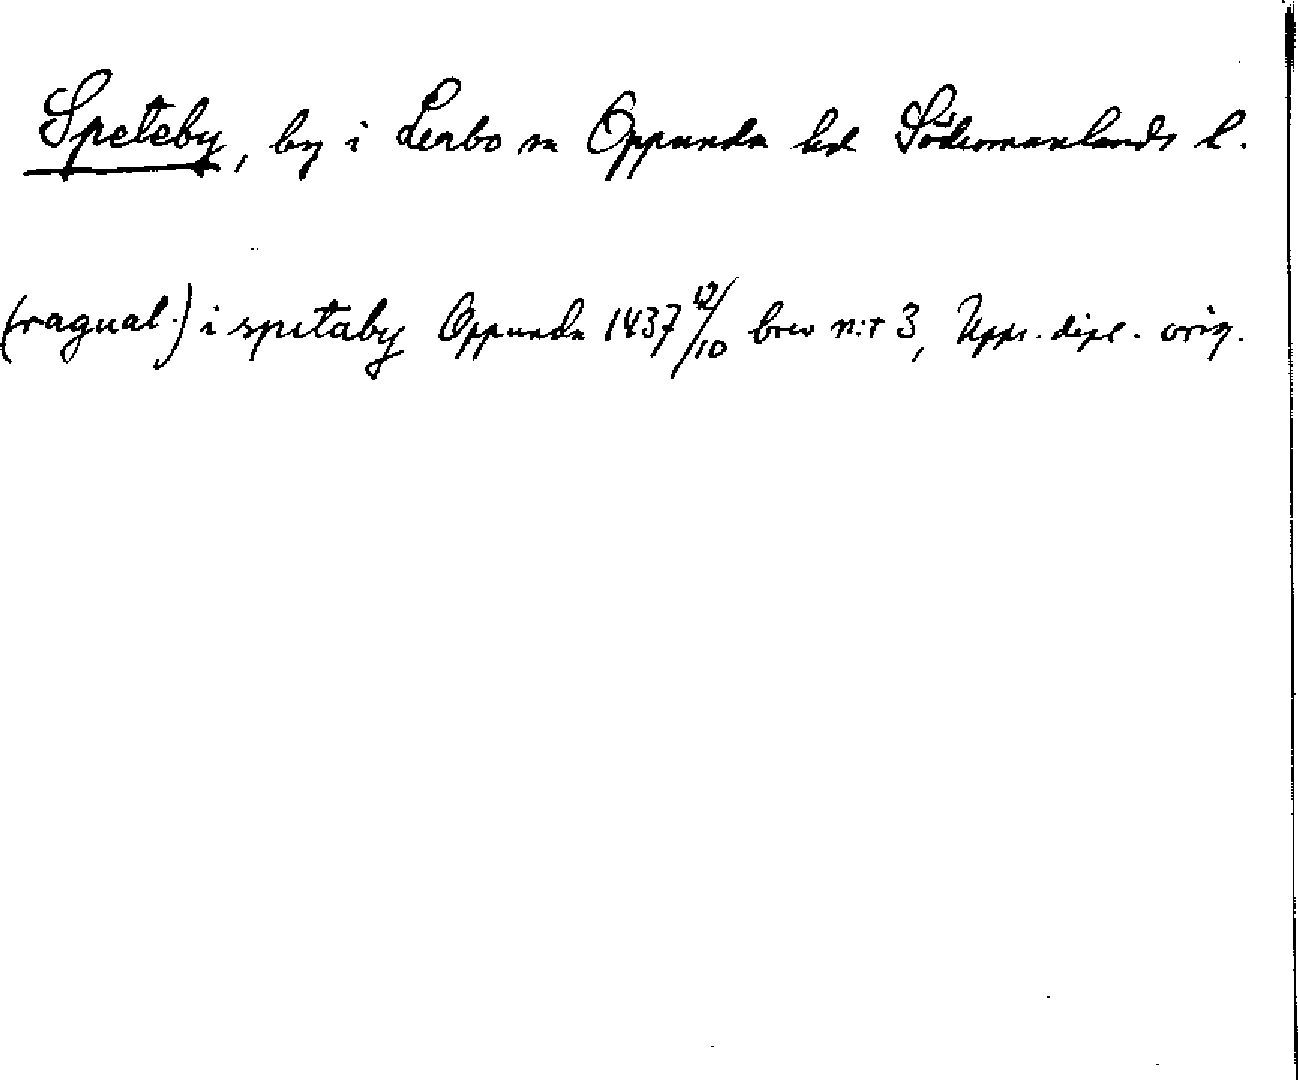 Speteby, by i Lerbo sn Oppunda hd Södermanlands l.
(ragual.) i spetaby Oppunda 1437 12/10 brev n:r 3, Upps. dipl. orig.